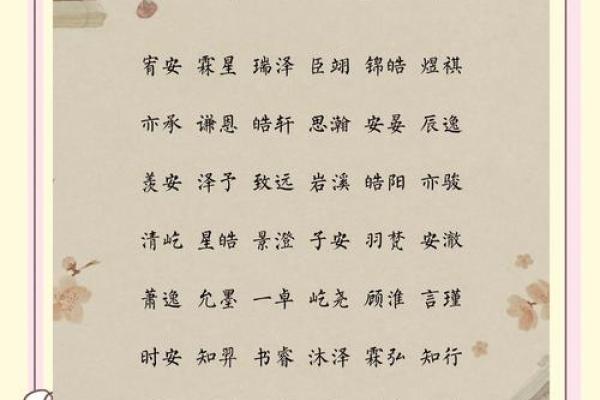 宥安 霖星 瑞泽 臣翊 锦皓 煜祺
亦承 谦恩 皓轩 思瀚 安晏 辰逸
羡安 泽予 致远 岩溪 皓阳 亦骏
清屹 星皓 景澄 子安 羽梵 安澈
萧逸 允墨 一卓 屹尧 顾淮 言瑾
时安 知羿 书睿 沐泽 霖弘 知行